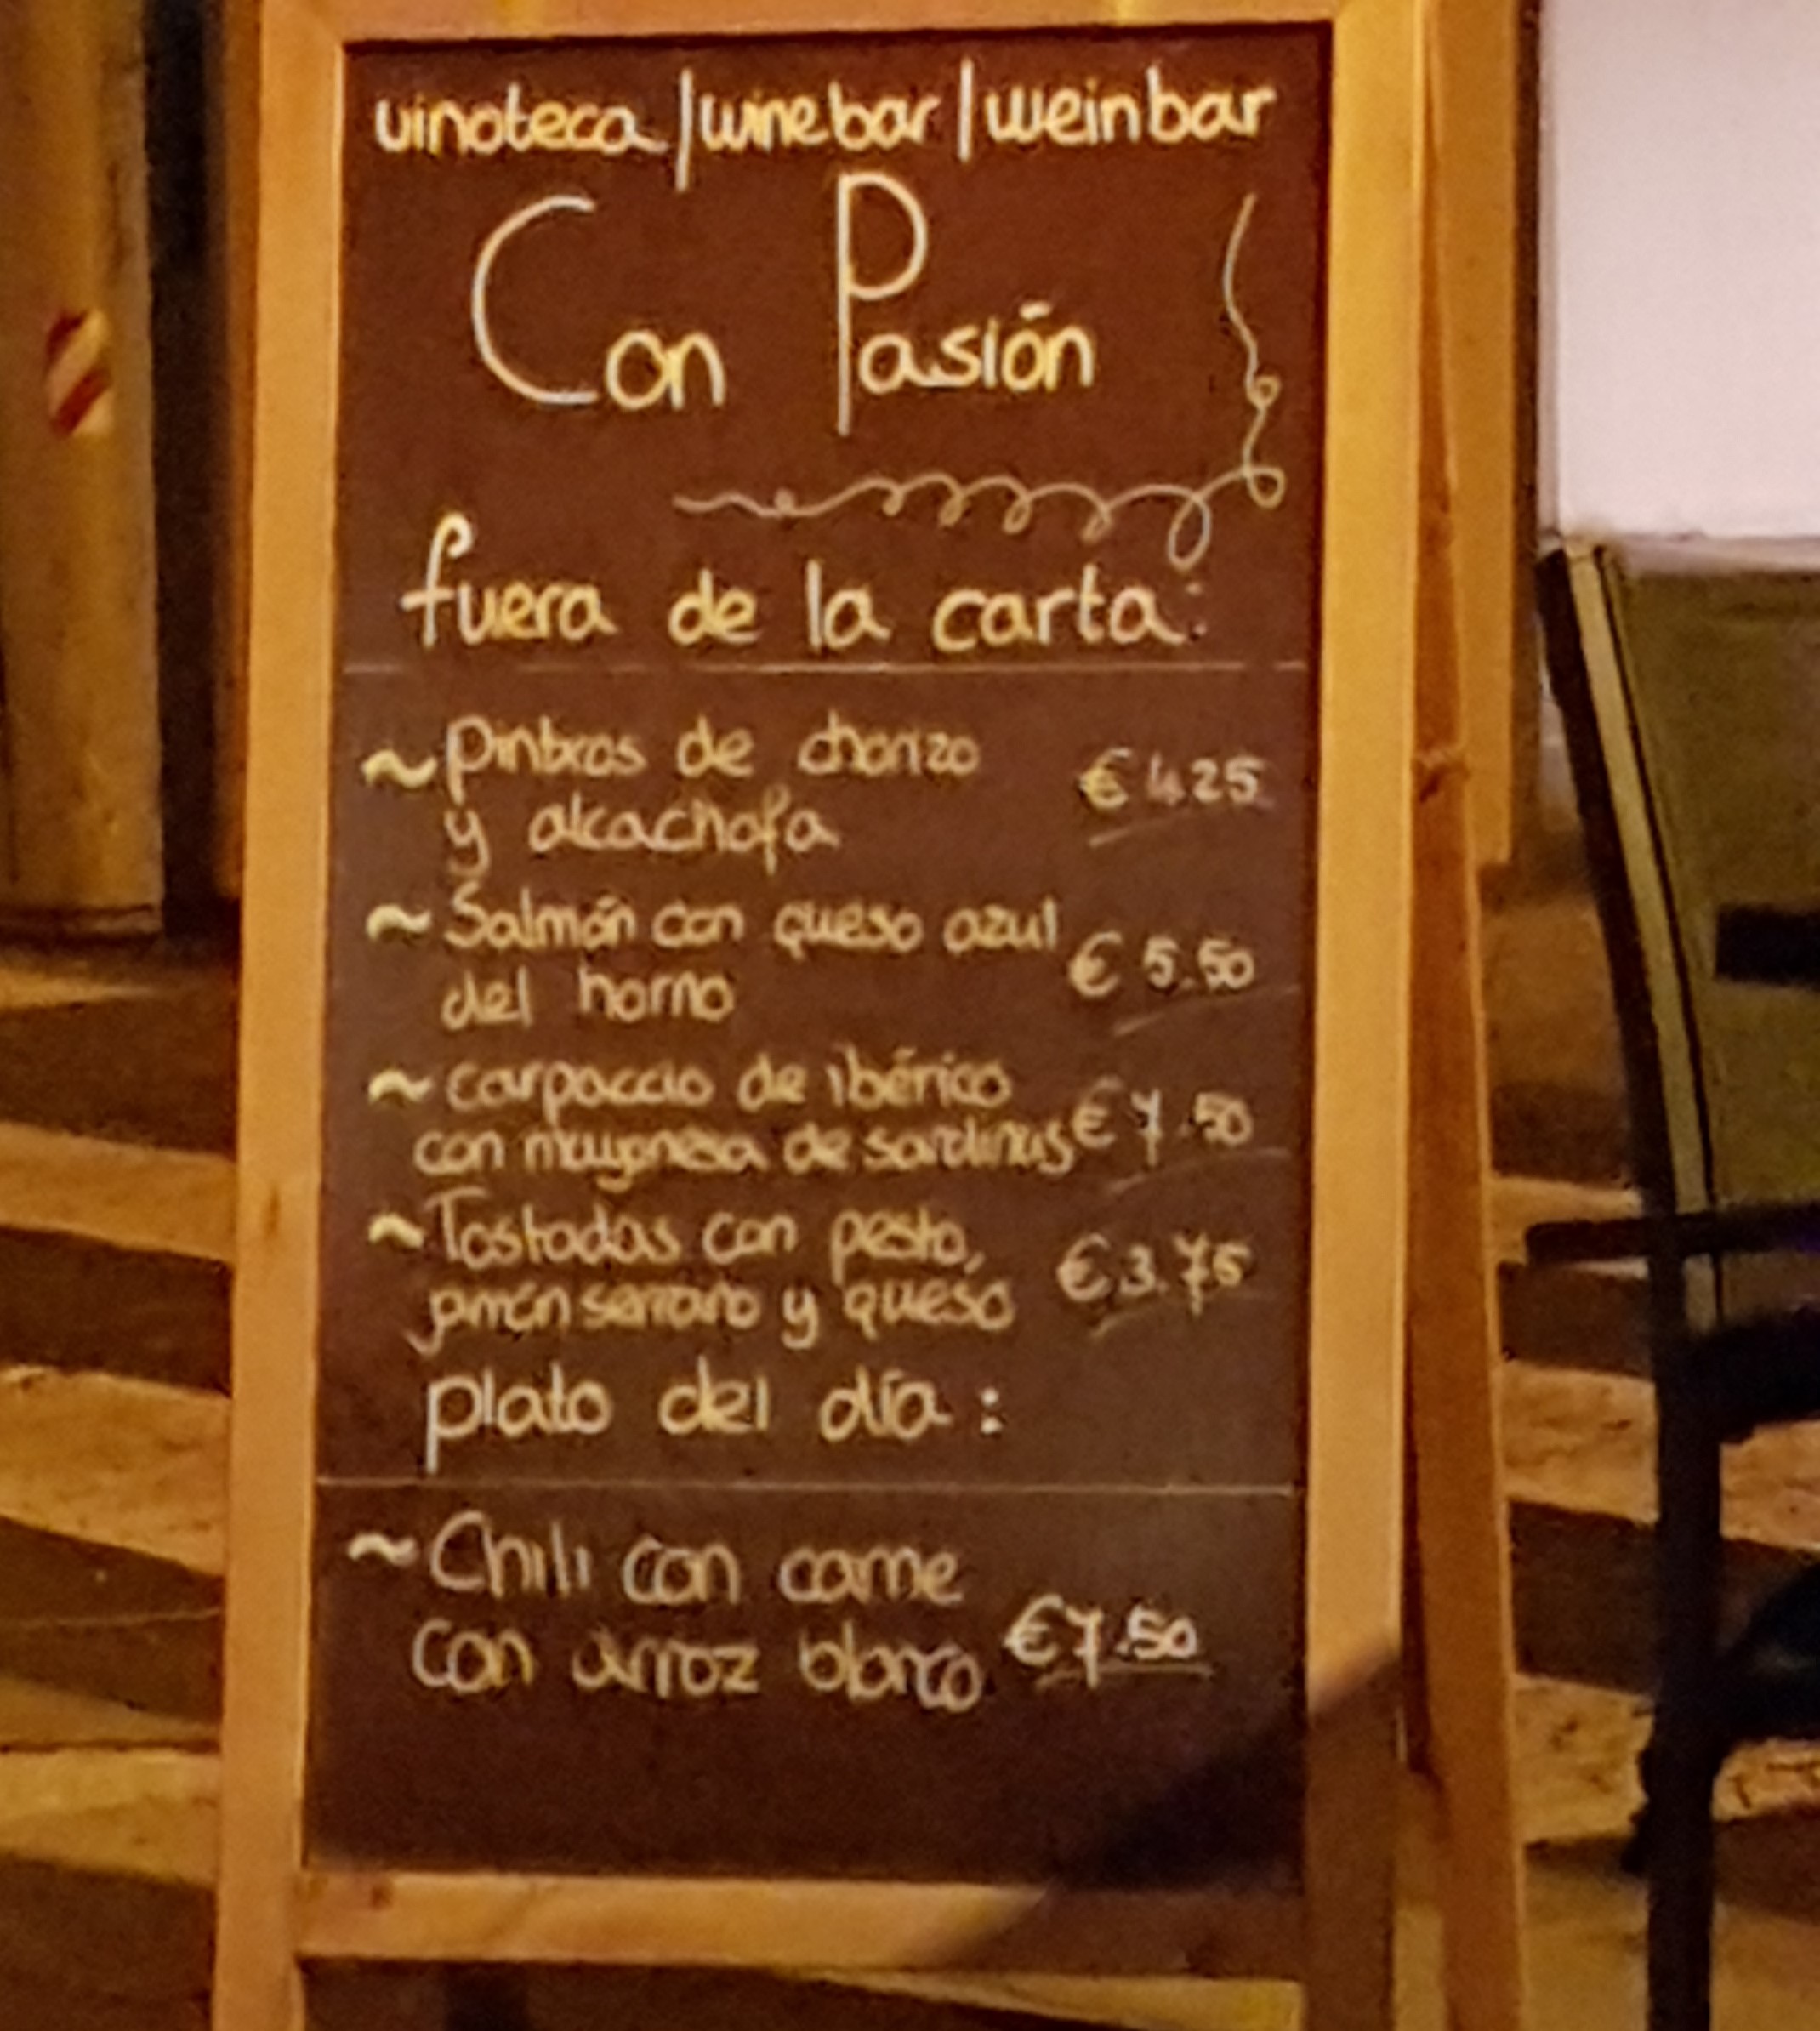 vinoteca | winebar | weinbar
Con Pasión
fuera de la carta:
~ pintxos de chorizo
y alcachofa € 4.25
~ Salmón con queso azul
del horno € 5.50
~ carpaccio de ibérico
con mayonesa de sardinas € 7.50
~ Tostadas con pesto,
jamón serrano y queso € 3.75
plato del día :
~ Chili con carne
con arroz blanco € 7.50